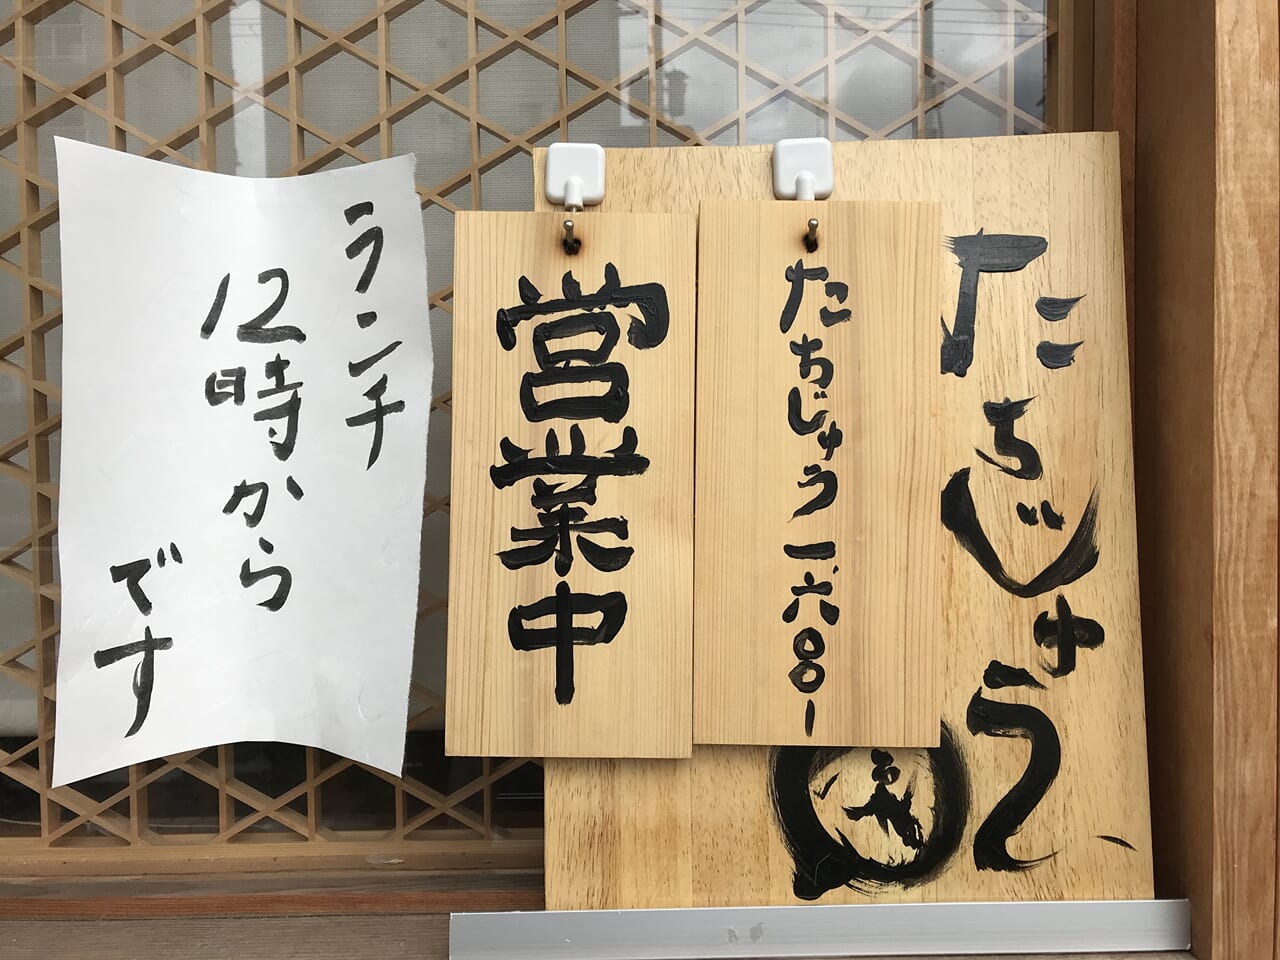 たちじゅう
たちじゅう 一、六〇〇ー
営業中
ランチ
12時から
です